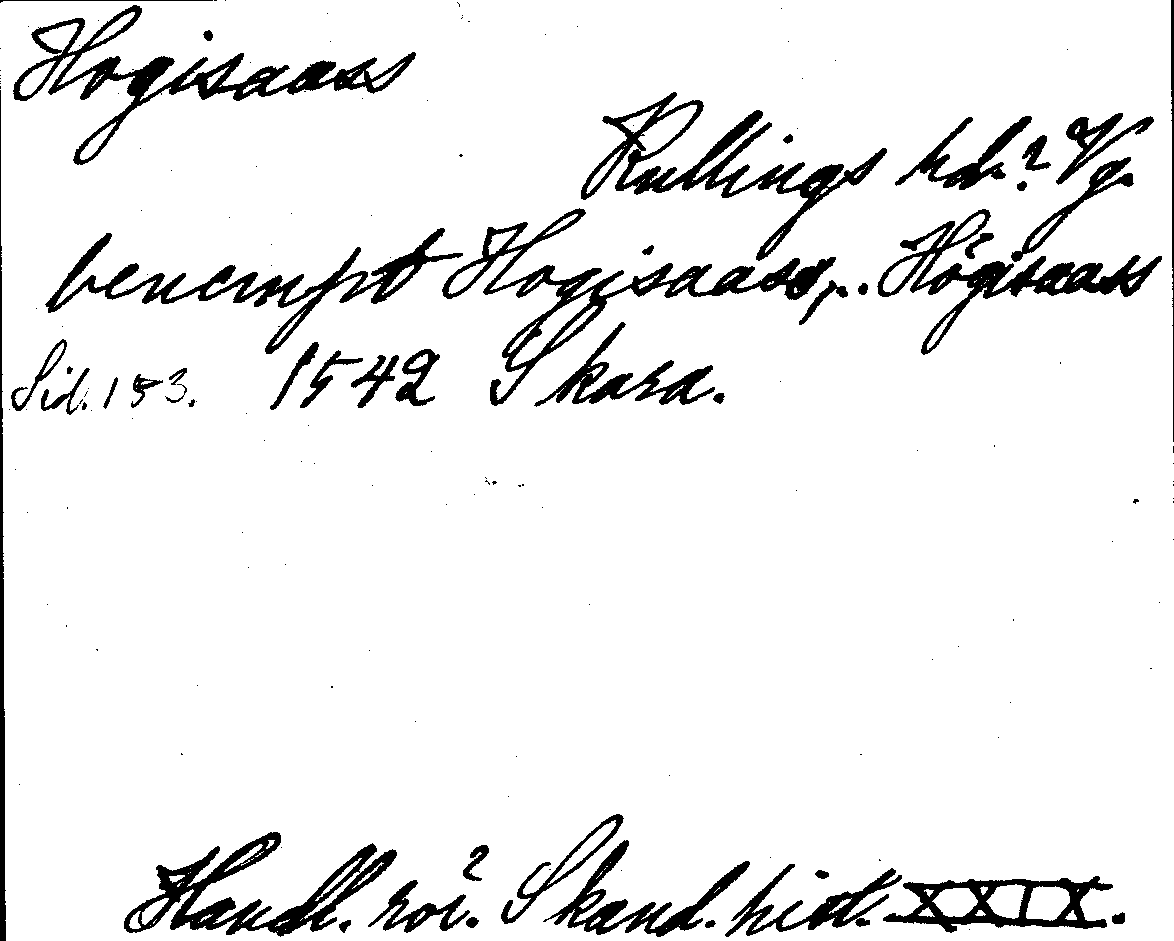 Hogisaass
Kullings hd.? Vg.
benempt Hogisaass, .. Högisaass
Sid. 153. 1542 Skara.
Handl. rör. Skand. hist. XXIX.